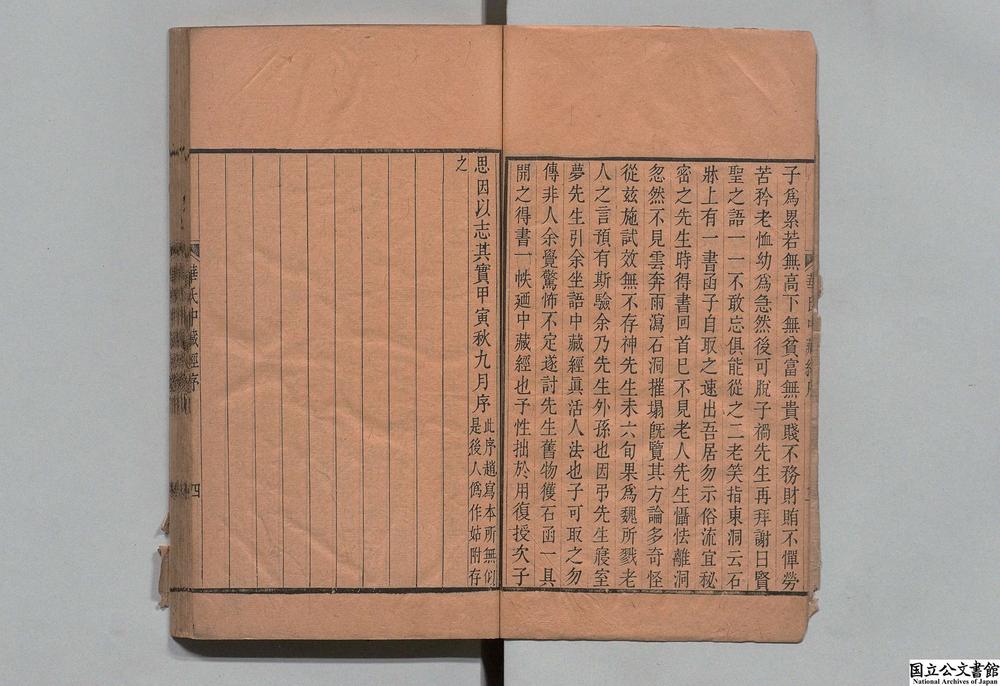 子爲累若無高下無貧富無貴賤不務財賄不憚勞
苦矜老恤幼爲急然後可脫子禍先生再拜謝曰賢
聖之語一一不敢忘俱能從之二老笑指東洞云石
牀上有一書函子自取之速出吾居勿示俗流宜秘
密之先生時得書回首已不見老人先生懾怯離洞
忽然不見雲奔雨瀉石洞摧塌旣覽其方論多奇怪
從茲施試效無不存神先生未六旬果爲魏所戮老
人之言預有斯驗余乃先生外孫也因弔先生寢室
夢先生引余坐語中藏經眞活人法也子可取之勿
傳非人余覺驚怖不定遂討先生舊物獲石函一具
開之得書一帙廼中藏經也予性拙於用復授次子
思因以志其實甲寅秋九月序
此序趙寫本所無似
是後人僞作姑附存
之
華氏中藏經序
四
国立公文書館
National Archives of Japan